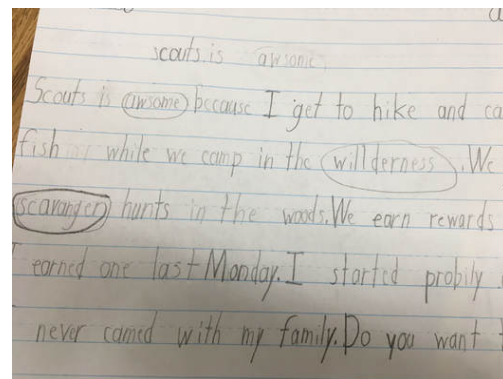 scouts is awsome
Scouts is awsome because I get to hike and ca
fish while we camp in the willderness. We
scavanger hunts in the woods. We earn rewards
I earned one last Monday. I started probily
I never camed with my family. Do you want